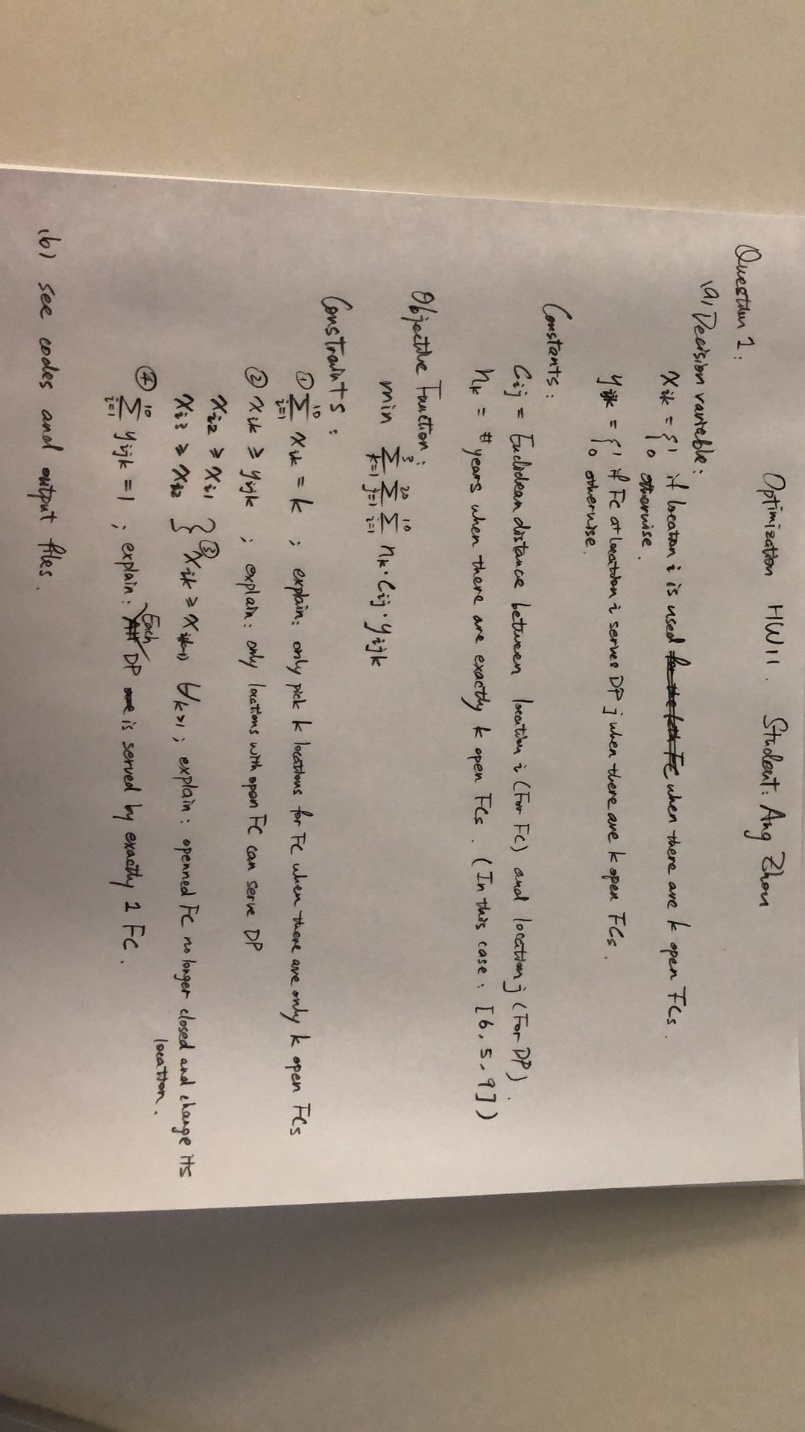 Optimization HW11. Student: Ang Zhou
Question 1:
(a) Decision variable:
xik = { 1 if location i is used when there are k open FCs.
0 otherwise.
yijk = { 1 if FC at location i serves DP j when there are k open FCs.
0 otherwise.
Constants:
Cij = Euclidean distance between location i (For FC) and location j (For DP).
nk = # years when there are exactly k open FCs. (In this case: [6, 5, 9])
Objective Function:
min 3∑k=1 20∑j=1 10∑i=1 nk·Cij·yijk
Constraints:
① 10∑i=1 xik = k ; explain: only pick k locations for FC when there are only k open FCs
② xik ≥ yijk ; explain: only locations with open FC can serve DP
xi2 ≥ xi1
xi3 ≥ xi2 } ③ xik ≥ xi(k-1) ∀k>1 ; explain: openned FC no longer closed and change its
location.
④ 10∑i=1 yijk = 1 ; explain: Each DP is served by exactly 1 FC.
(b) see codes and output files.